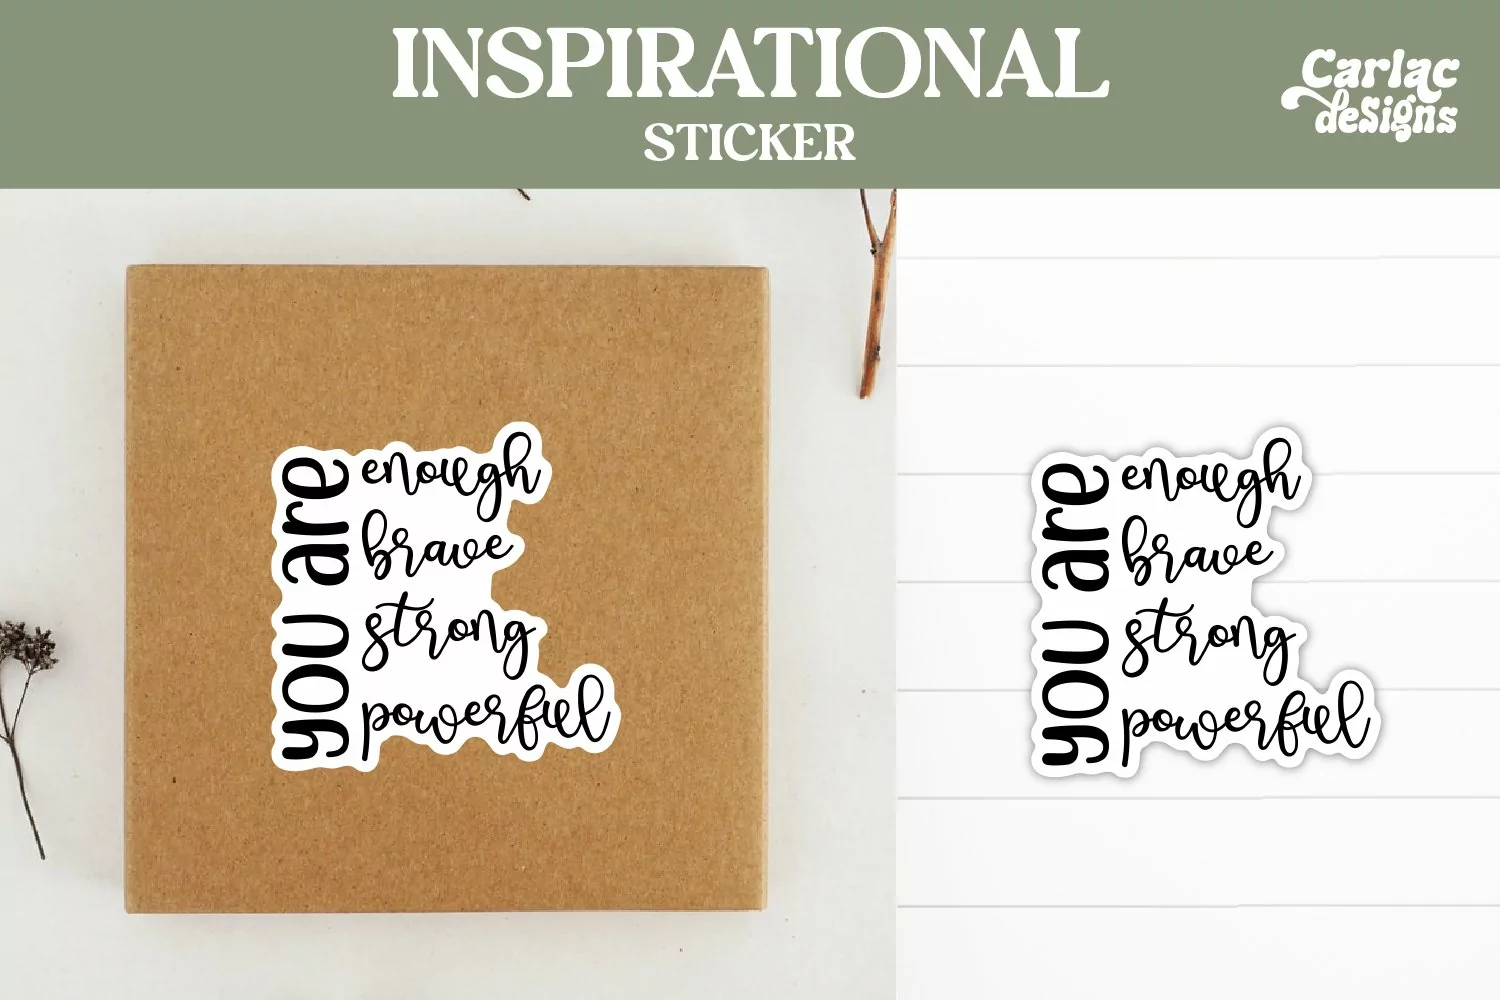 INSPIRATIONAL
STICKER
Carlac
designs
you are
enough
brave
strong
powerful
you are
enough
brave
strong
powerful